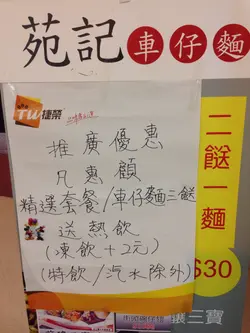 苑記車仔麵
TW捷榮
推廣優惠
凡惠顧
精選套餐/車仔麵三餸
送熱飲
(凍飲+2元)
(特飲/汽水除外)
二餸一麵
$30
選三寶